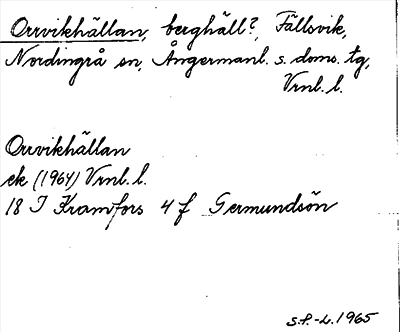 Orrvikhällan, berghäll?, Fällsvik,
Nordingrå sn, Ångermanl. s. doms. tg,
Vrnl. l.
Orrvikhällan
ek (1964) Vrnl. l.
18 I Kramfors 4 f Germundsön
S.F.-L. 1965